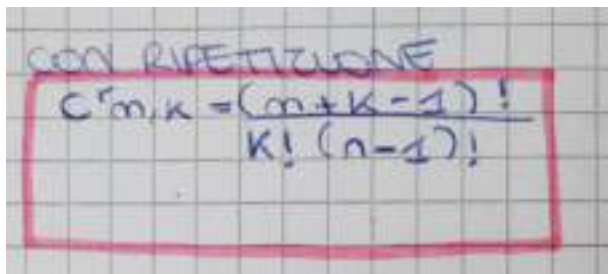 CON RIPETIZIONE
C'n,k = (n+k-1)!
k! (n-1)!